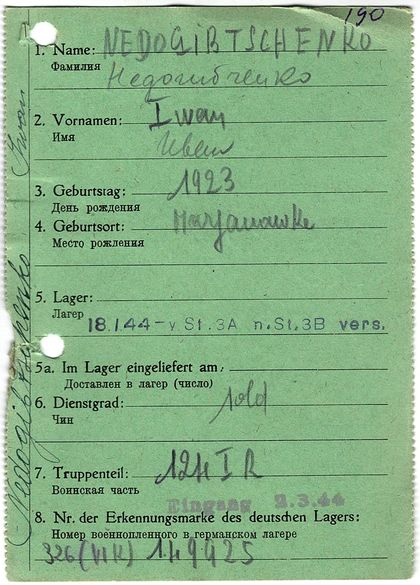 190
1. Name: NEDOGIBTSCHENKO
Фамилия Недогибченко
2. Vornamen: Iwan
Имя Иван
3. Geburtstag: 1923
День рождения
4. Geburtsort: Marjanowke
Место рожления
5. Lager:
Лагер
18.1.44 – v. St. 3A n. St. 3B vers.
5a. Im Lager eingeliefert am:
Доставлен в лагер (число)
6. Dienstgrad: sold
Чин
7. Truppenteil: 1241 I R
Воинская часть
Eingang 2.3.44
8. Nr. der Erkennungsmarke des deutschen Lagers:
Номер военнопленного в германском лагере
326 (VI K) 149425
Nedogibtschenko Iwan